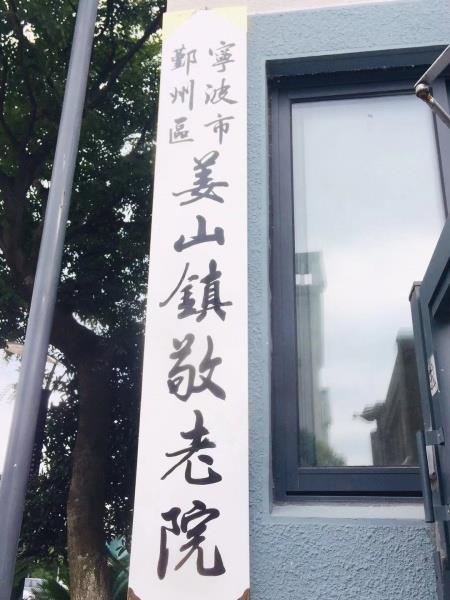 寧波市
鄞州區
姜山鎮敬老院